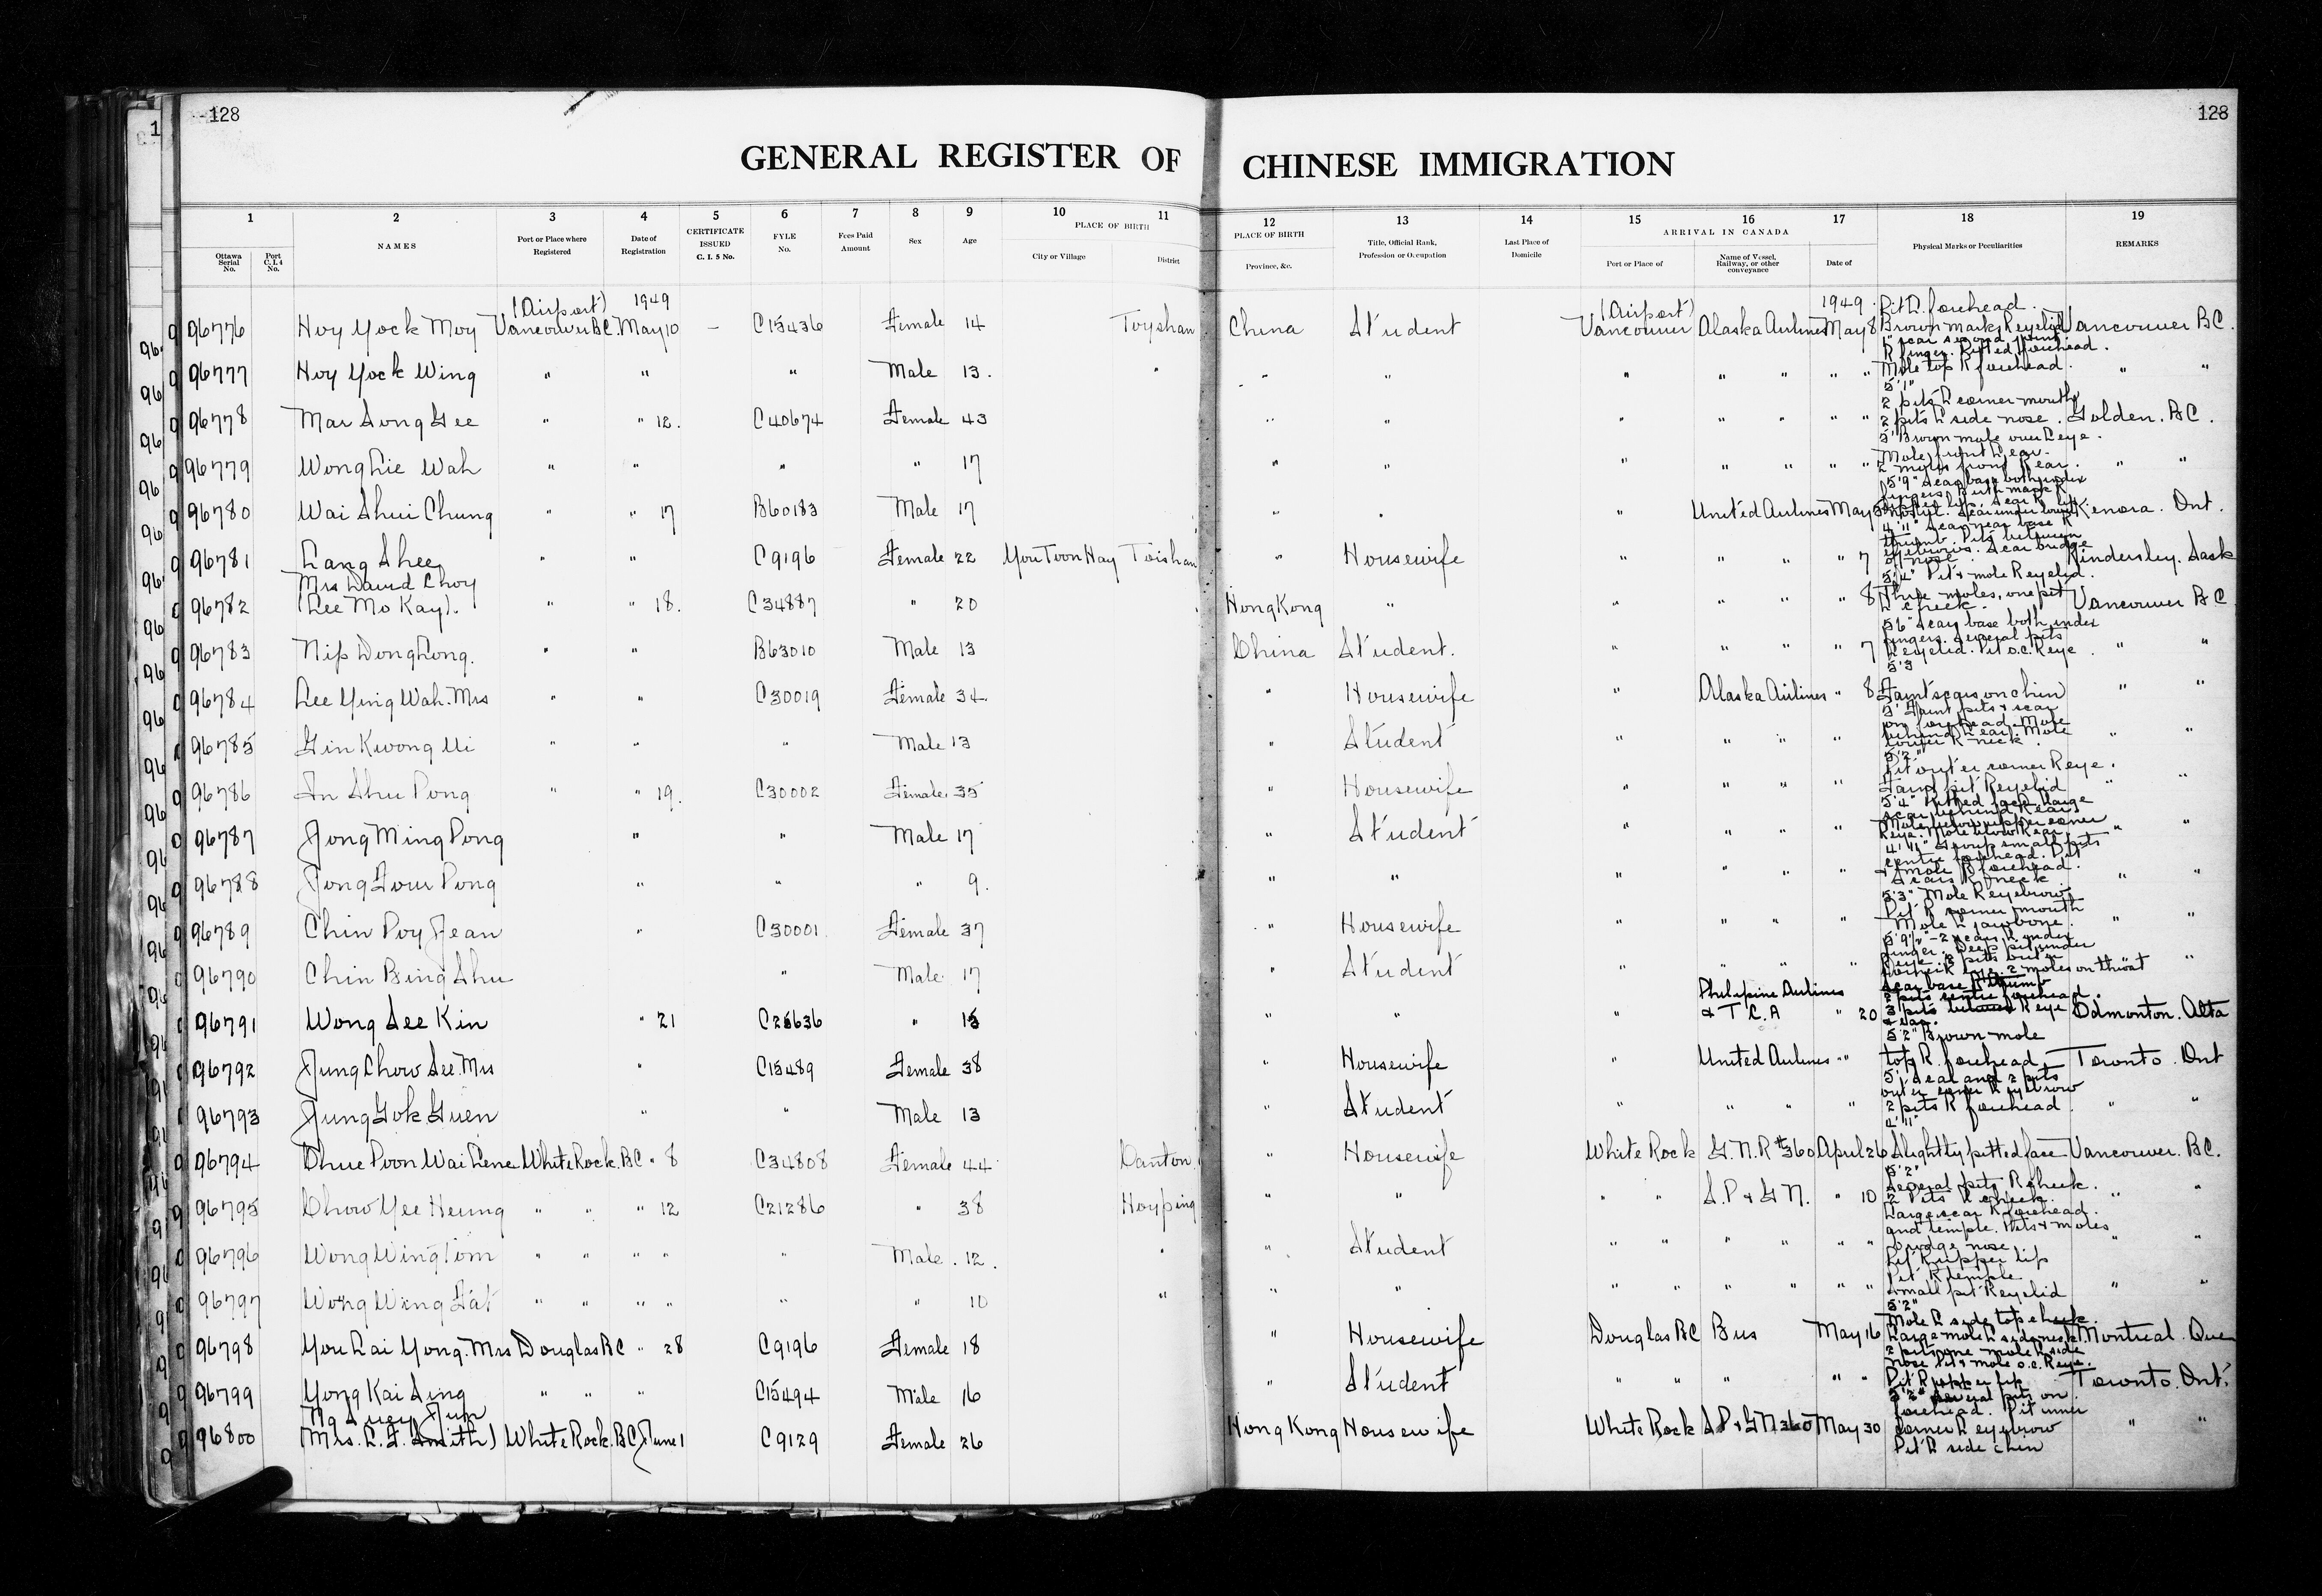 128
128
GENERAL REGISTER OF CHINESE IMMIGRATION
1 2 3 4 5 6 7 8 9 10 11 12 13 14 15 16 17 18 19
Ottawa Serial No. Port C.I.4 No. NAMES Port or Place where Registered Date of Registration CERTIFICATE ISSUED C. I. 5 No. FYLE No. Fees Paid Amount Sex Age PLACE OF BIRTH City or Village District PLACE OF BIRTH Province, &c. Title, Official Rank, Profession or Occupation Last Place of Domicile ARRIVAL IN CANADA Port or Place of Name of Vessel, Railway, or other conveyance Date of Physical Marks or Peculiarities REMARKS
(Airport) 1949 (Airport) 1949 Pit L. forehead.
96776 Hoy Yock Moy Vancouver BC May 10 – C15436 Female 14 Toyshan China Student Vancouver Alaska Airlines May 8 Brown mark R eyelid Vancouver BC.
96777 Hoy Yock Wing " " " Male 13. " " " " " " " " Mole top R forehead. " "
5'1"
2 pits L corner mouth
96778 Mar Song Gee " " 12. C40674 Female 43 " " " " " " " 2 pits L side nose. Golden. BC.
5' Brown mole over L eye.
Mole front L ear.
96779 Wong Lie Wah " " " " 17 " " " " " " " 2 moles front R ear. " "
5'9" Scar base both index
96780 Wai Shui Chung " " 17 B60183 Male 17 " " " United Airlines May Kenora. Ont.
4'11" Scar near base R
thumb. Pits between
eyebrows. Scar bridge
96781 Lang Shee " " C9196 Female 22 You Toon Hay Toishan " Housewife " " " " 7 of nose. Kindersley. Sask
Mrs David Choy 5'4" Pit & mole R eyelid.
96782 (Lee Mo Kay). " " 18. C34887 " 20 HongKong " " " " " 8 Three moles, one pit L cheek. Vancouver BC
5'6" Scar base both index
fingers. Several pits
96783 Nip Dong Long. " " B63010 Male 13 China Student. " " " " 7 L eyelid. Pit o.c. R eye. " "
5'3
96784 Lee Ying Wah. Mrs " " C30019 Female 34. " Housewife " Alaska Airlines " 8 Faint scars on chin " "
5' Faint pits & scar
on forehead. Mole
behind L ear. Mole
96785 Gin Kwong Ui " " " Male 13 " Student " " " " " lower R neck. " "
5'2"
Pit outer corner R eye.
96786 In Shu Pong " " 19. C30002 Female 35 " Housewife " " " " " Faint pit R eyelid " "
5'4" Pitted face. Large
scar behind R ear.
96787 Jong Ming Pong " " Male 17 " Student " " " " " " "
4'11" Group small pits
centre forehead. Pit
& mole R forehead.
96788 Jong Four Pong " " " 9. " " " " " " " Scars R neck " "
5'3" Mole R eyebrow
Pit R corner mouth
96789 Chin Poy Jean " C30001. Female 37 " Housewife " " " " Mole L jawbone. " "
96790 Chin Bing Shu " Male 17 " Student " " " " 2 moles on throat "
Philipine Airlines Scar base R thumb
2 pits centre forehead.
96791 Wong See Kin " 21 C25636 " 15 " " " & T C. A " 20 3 pits R eye Edmonton. Alta
5'2" Brown mole
96792 Jung Chow See. Mrs " C15489 Female 38 " Housewife " United Airlines " " top R. forehead Toronto. Ont
5'1 Scar and 2 pits
outer corner L eyebrow
96793 Jung Gok Guen " " Male 13 " Student " " " " 2 pits R forehead. " "
4'11"
96794 Chue Poon Wai Lene White Rock. BC " 8 C34808 Female 44 Canton " Housewife White Rock G. N. R #360 April 26 Slightly pitted face Vancouver. BC.
5'2"
Several pits R cheek.
96795 Chow Yee Heung " " " 12 C21286 " 38 Hoyping " " " " S. P & G N. " 10 2 Pits L cheek. " "
Large scar R forehead.
and temple. Pits & moles
96796 Wong Wing Tom " " " " " Male. 12. " " Student " " " " " " bridge nose. " "
Pit R upper lip
Pit R temple
96797 Wong Wing Fat " " " " " " 10 " " " " " " " " " Small pit R eyelid " "
5'2"
Mole L side, top cheek.
96798 You Lai Yong. Mrs Douglas BC " 28 C9196 Female 18 " Housewife Douglas BC Bus May 16 Large mole L side neck Montreal. Que
2 pits one mole L side
nose. Pit & mole o.c. R eye.
96799 Yong Kai Sing " " " C15494 Male 16 " Student " " " " " Pit R upper lip Toronto. Ont.
Ng Suey Jun 5'2" Several pits on
forehead. Pit inner
96800 (Mrs. L. F. Smith) White Rock. BC June 1 C9129 Female 26 Hong Kong Housewife White Rock S P & G N 360 May 30 corner L eyebrow " "
Pit L side chin